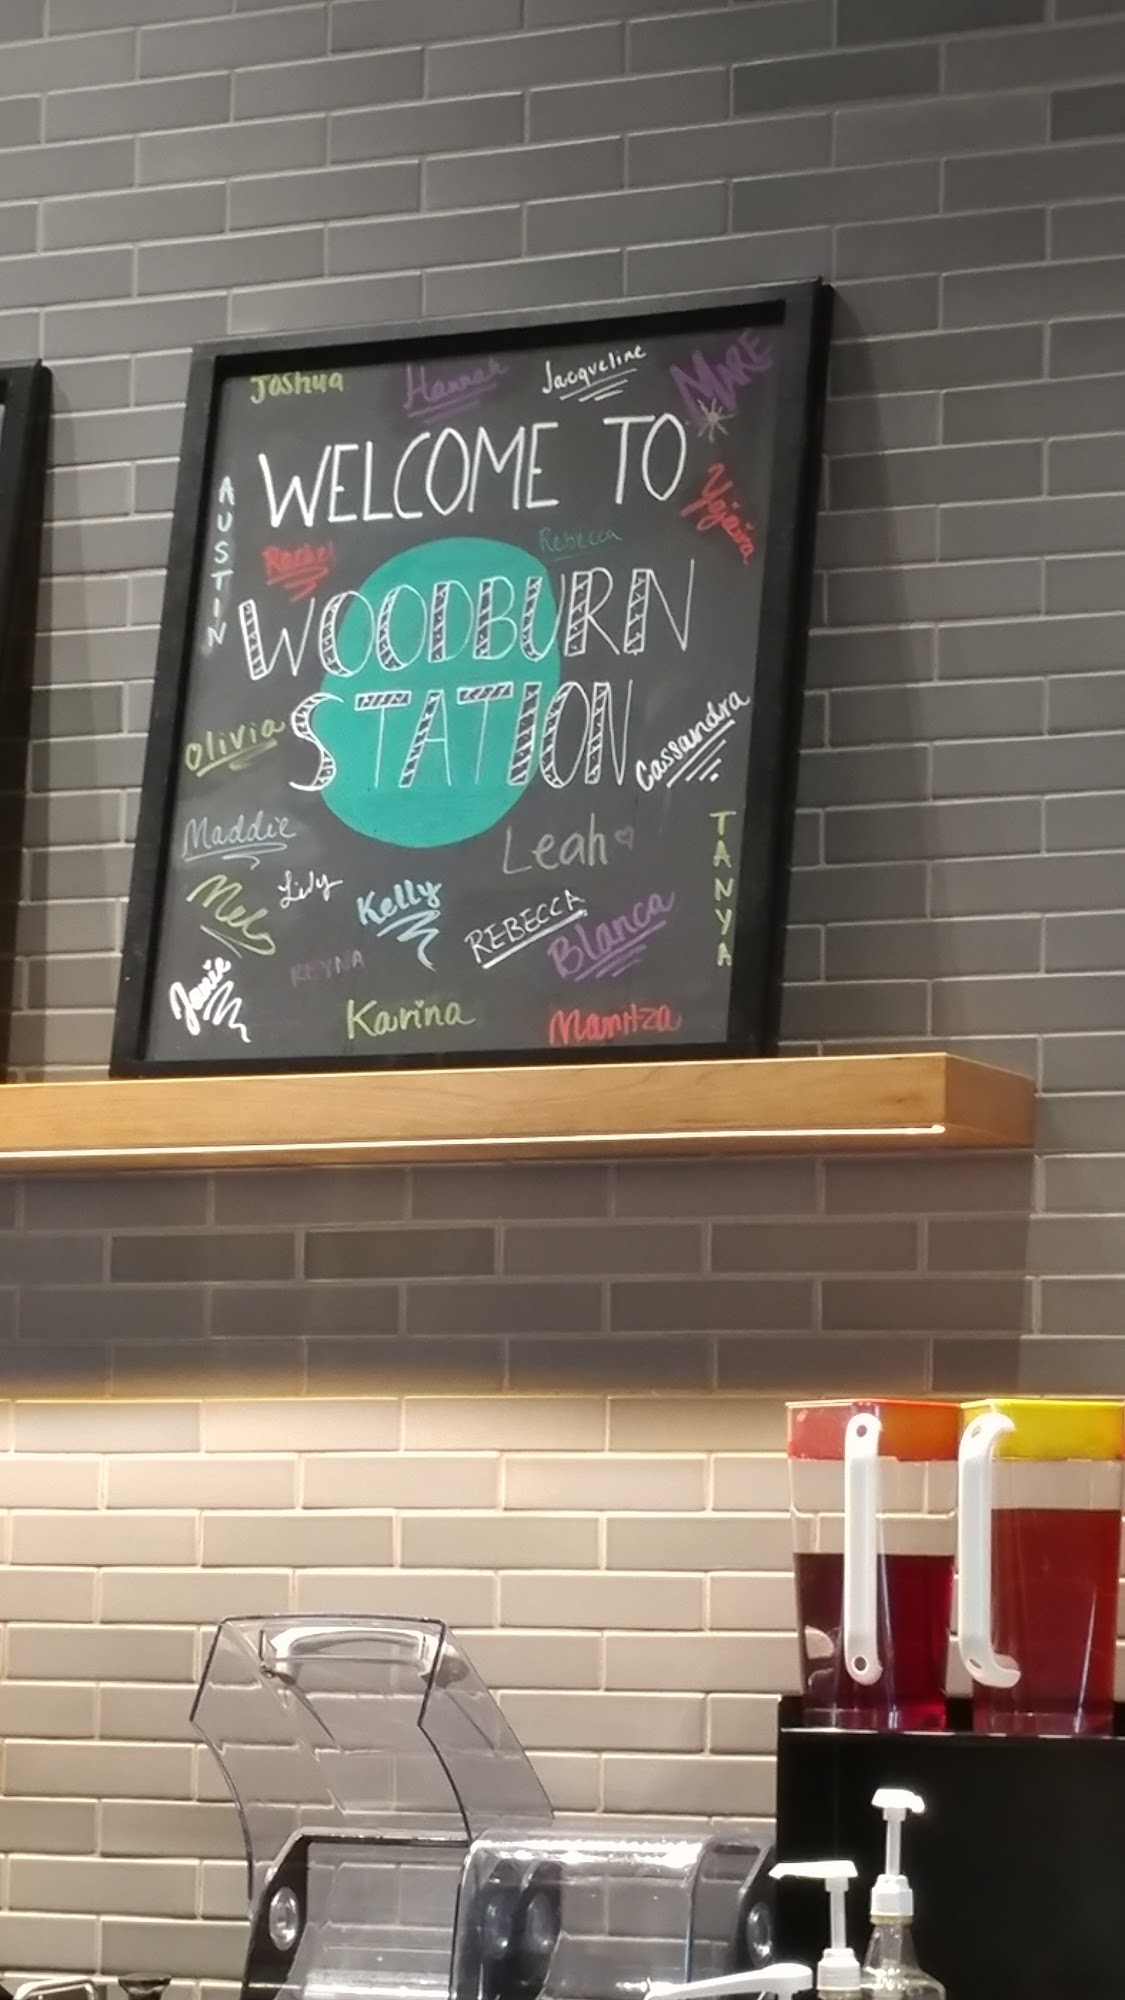 Joshua
Hannah
Jacqueline
MARE
WELCOME TO
AUSTIN
Rachel
Rebecca
Yajaira
WOODBURN
STATION
Olivia
Cassandra
Maddie
Leah
TANYA
Mel
Lily
Kelly
REBECCA
Blanca
Janie
REYNA
Karina
Maritza